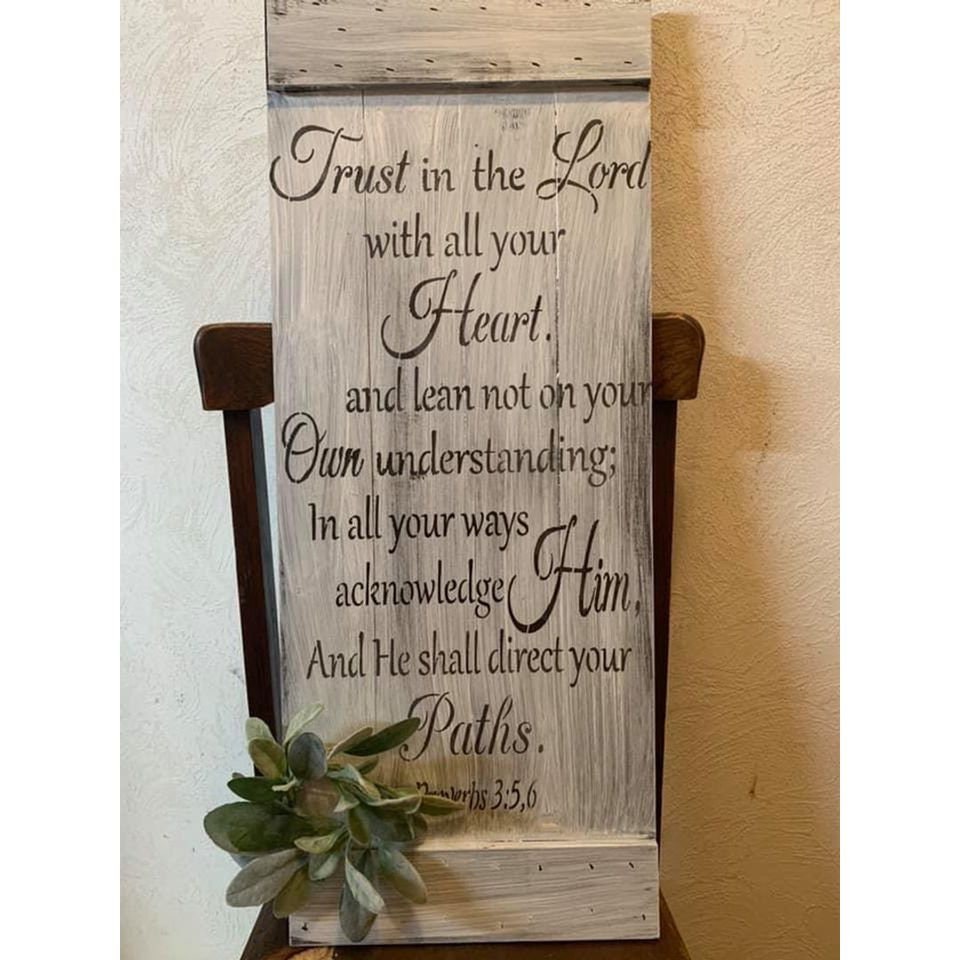 Trust in the Lord
with all your
Heart.
and lean not on your
Own understanding;
In all your ways
acknowledge Him,
And He shall direct your
Paths.
Proverbs 3:5,6